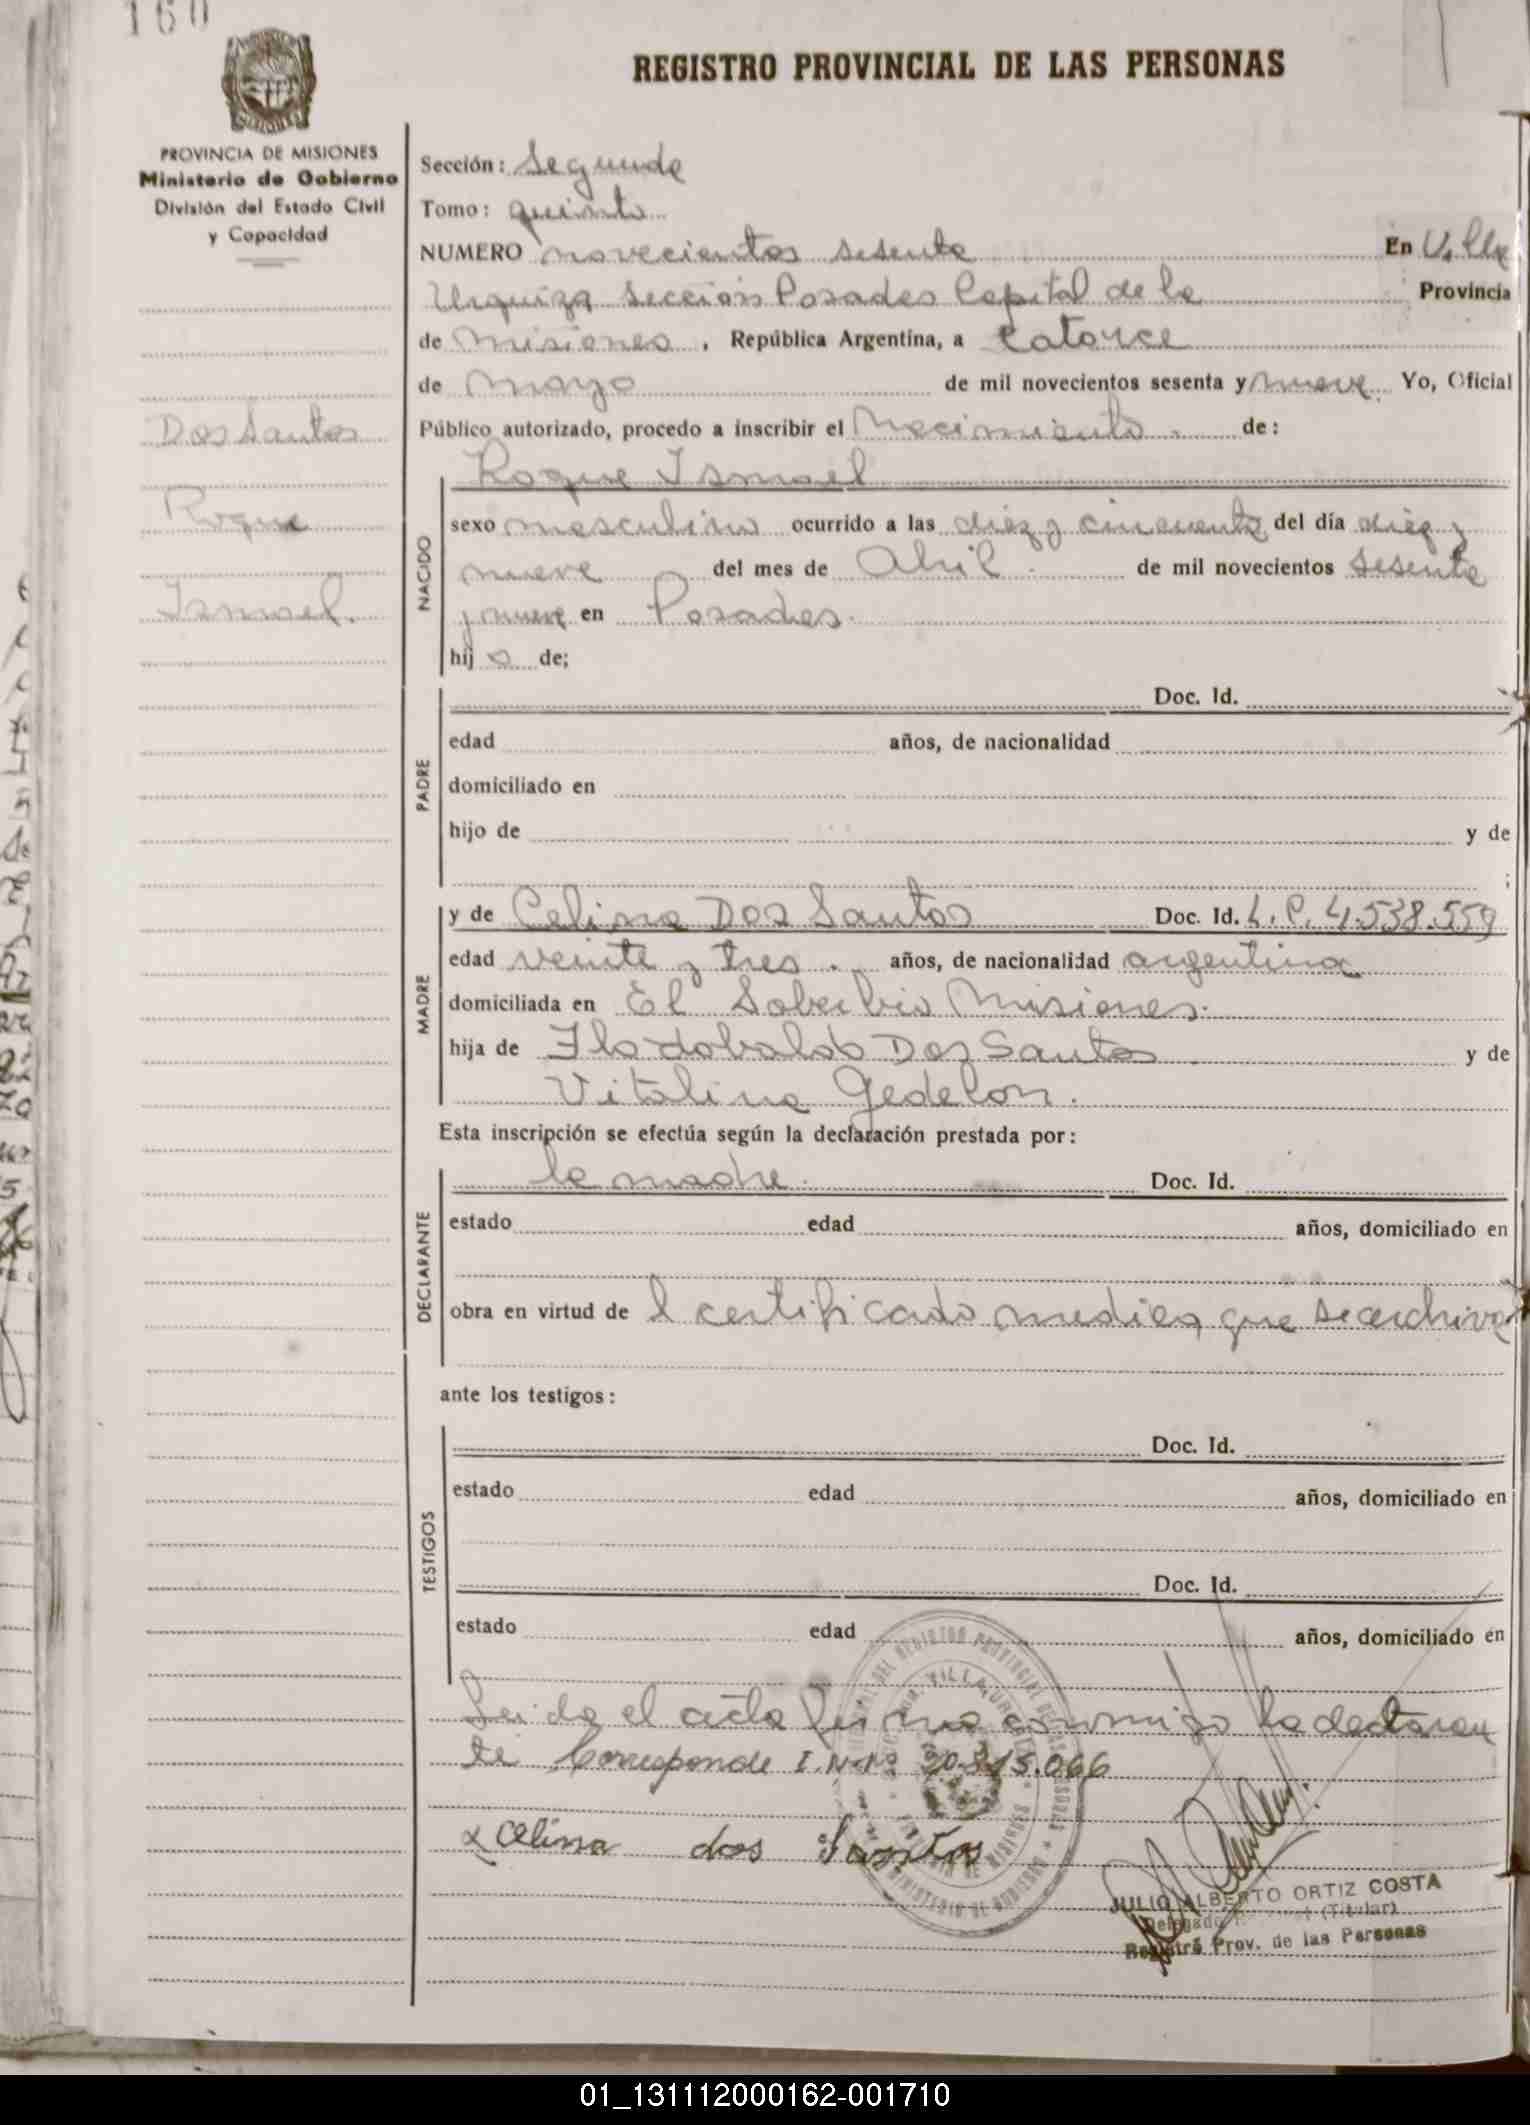 160
REGISTRO PROVINCIAL DE LAS PERSONAS
PROVINCIA DE MISIONES
Ministerio de Gobierno
División del Estado Civil
y Capacidad
Dos Santos
Roque
Ismael.
Sección: Segunda
Tomo: quinto
NUMERO novecientos sesenta En Villa
Urquiza Sección Posadas Capital de la Provincia
de Misiones, República Argentina, a catorce
de mayo de mil novecientos sesenta y nueve Yo, Oficial
Público autorizado, procedo a inscribir el Nacimiento. de:
Roque Ismael
NACIDO
sexo masculino ocurrido a las diez y cincuenta del día diez y
nueve del mes de Abril. de mil novecientos sesenta
y nueve en Posadas.
hijo de;
PADRE
Doc. Id.
edad años, de nacionalidad
domiciliado en
hijo de y de
;
MADRE
y de Celina Dos Santos Doc. Id. L.C. 4.538.559
edad veinte y tres. años, de nacionalidad argentina
domiciliada en El Soberbio Misiones.
hija de Flodobaldo Dos Santos y de
Vitalina Gedelon.
Esta inscripción se efectúa según la declaración prestada por:
DECLARANTE
la madre. Doc. Id.
estado edad años, domiciliado en
obra en virtud del certificado medico que se archiva
ante los testigos:
TESTIGOS
Doc. Id.
estado edad años, domiciliado en
Doc. Id.
estado edad años, domiciliado en
Leida el acta firma conmigo la declaran
te Corresponde I.N.Nº 20.815.066
Celina dos Santos
JULIO ALBERTO ORTIZ COSTA
Delegado (Titular)
Registro Prov. de las Personas
01_131112000162-001710